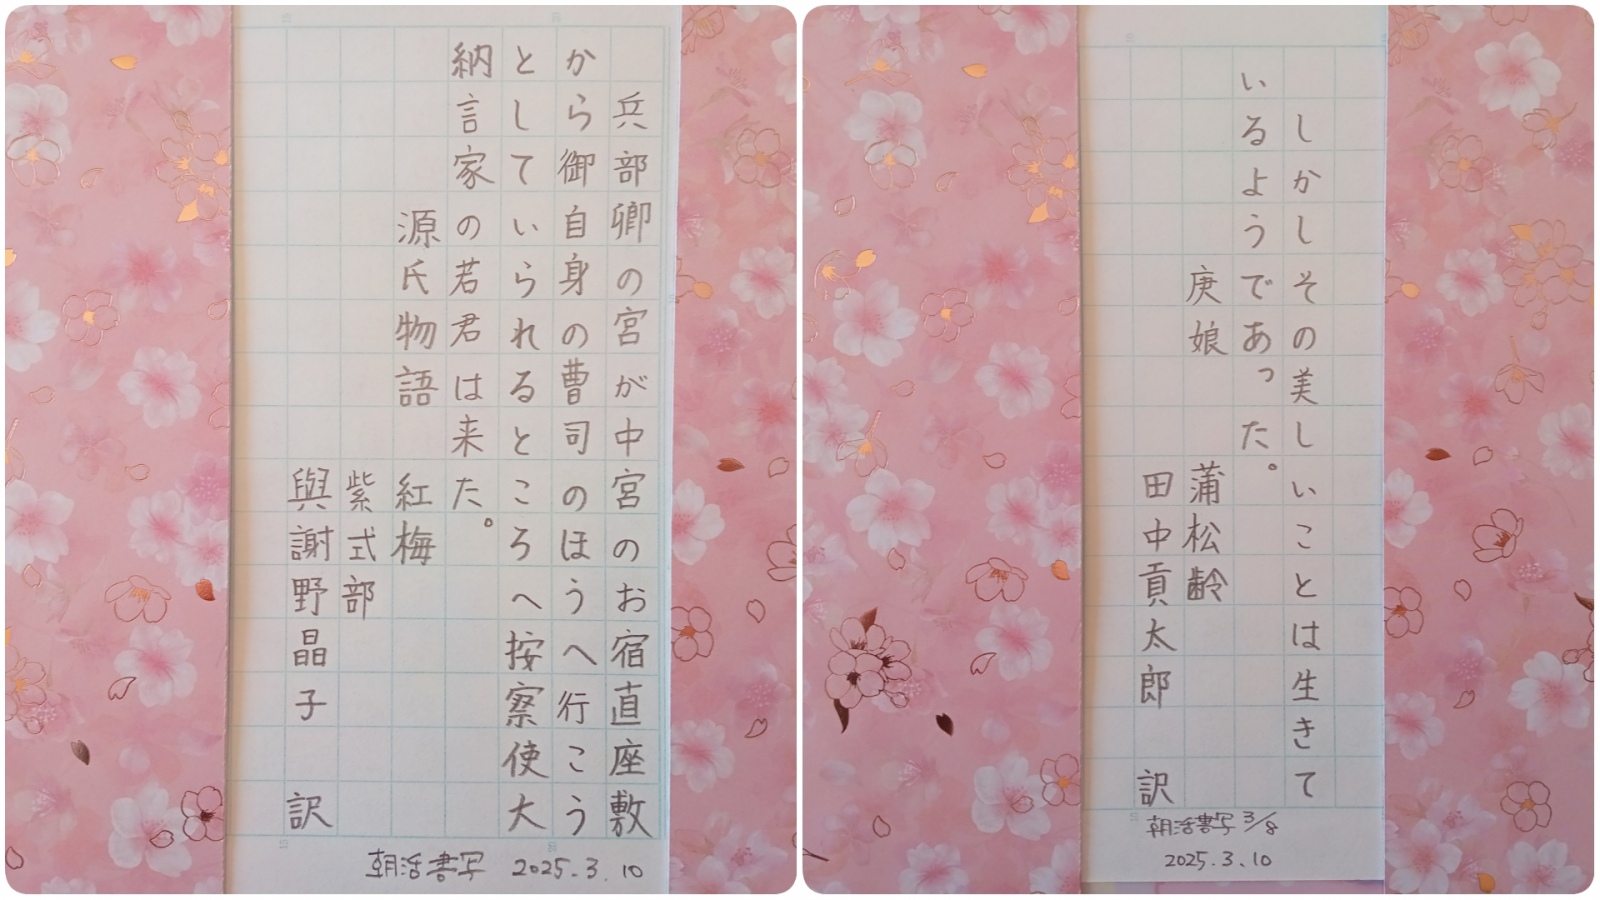 兵部卿の宮が中宮のお宿直座敷
から御自身の曹司のほうへ行こう
としていられるところへ按察使大
納言家の若君は来た。
源氏物語　紅梅
紫式部
與謝野晶子　訳
朝活書写　2025.3.10
しかしその美しいことは生きて
いるようであった。
庚娘　蒲松齢
田中貢太郎　訳
朝活書写 3/8
2025.3.10